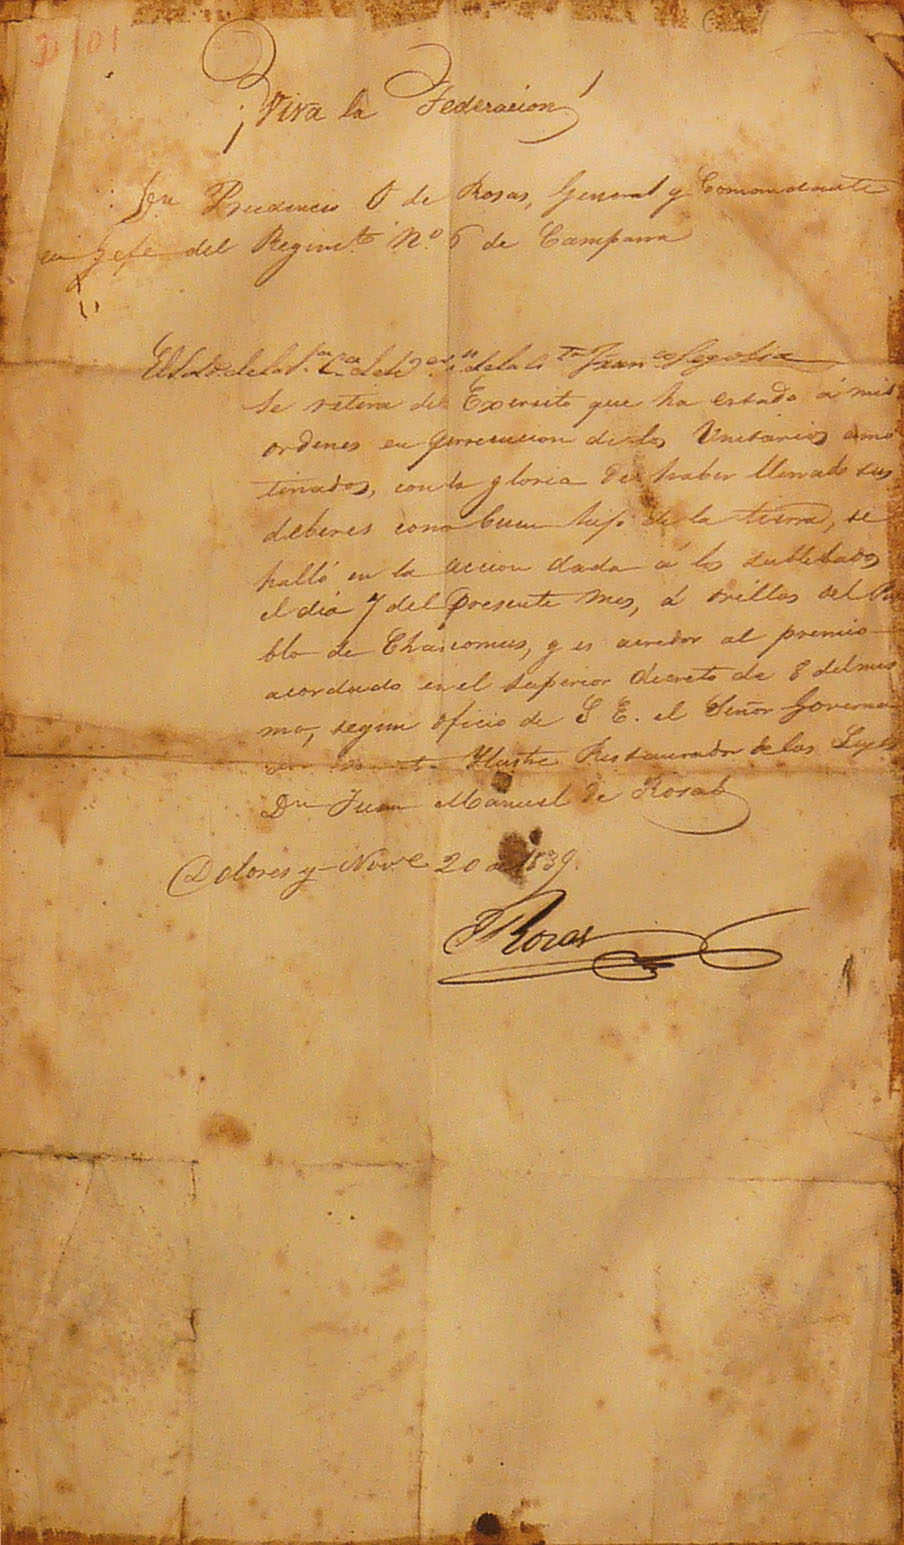 D 101
¡Viva la Federacion!
Dn Prudencio O de Rosas, General y Comandante
en Jefe del Regimto No. 6 de Campana
El Sdo de la Franco Segovia
se retira del Exersito que ha estado á mis
ordenes en persecucion de los Unitarios amo
tinados, con la gloria de haber llenado sus
deberes como buen hijo de la tierra, se
halló en la accion dada á los sublebados
el dia 7 del presente mes, á orillas del Pue
blo de Chascomus, y es acredor al premio
acordado en el superior decreto de 8 del mis
mo, segun oficio de S E. el Señor Governa
dor Ilustre Restaurador de las Leyes
Dn Juan Manuel de Rosas
Dolores y Nove 20 de 1839.
P Rosas